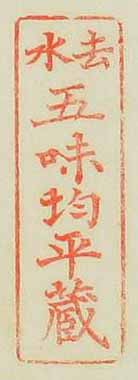 去水
五味均平蔵